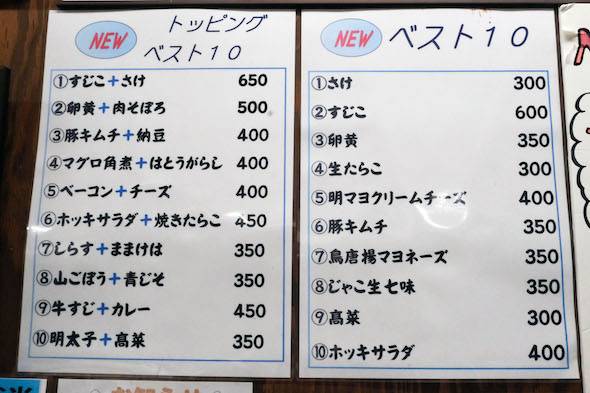 NEW
トッピング
ベスト10
①すじこ+さけ 650
②卵黄+肉そぼろ 500
③豚キムチ+納豆 400
④マグロ角煮+はとうがらし 400
⑤ベーコン+チーズ 400
⑥ホッキサラダ+焼きたらこ 450
⑦しらす+ままけは 350
⑧山ごぼう+青じそ 350
⑨牛すじ+カレー 450
⑩明太子+高菜 350
NEW ベスト10
①さけ 300
②すじこ 600
③卵黄 350
④生たらこ 300
⑤明マヨクリームチーズ 400
⑥豚キムチ 350
⑦鳥唐揚マヨネーズ 350
⑧じゃこ生七味 350
⑨高菜 300
⑩ホッキサラダ 400